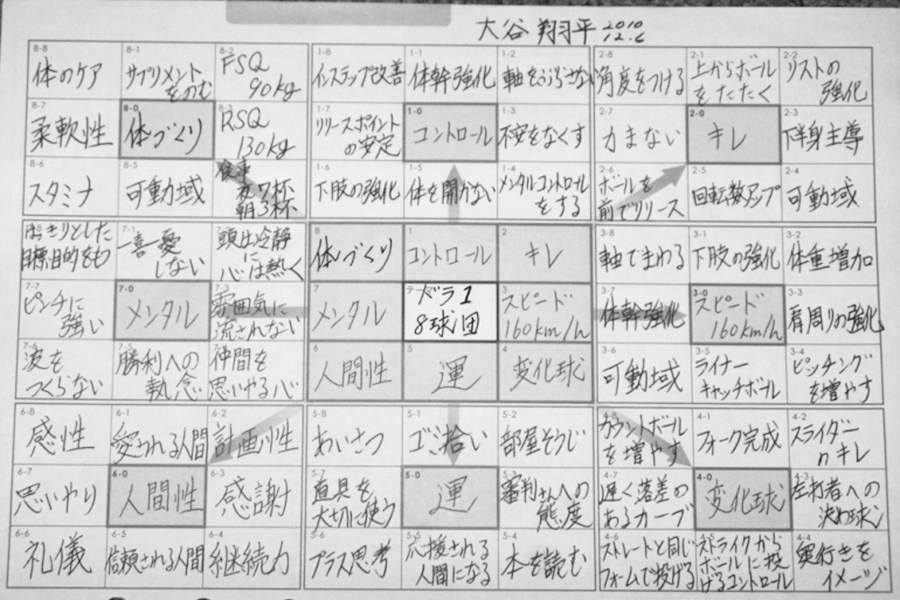 大谷 翔平 2010 12.6
8-8 体のケア
8-1 サプリメントをのむ
8-2 FSQ 90kg
1-8 インステップ改善
1-1 体幹強化
1-2 軸をぶらさない
2-8 角度をつける
2-1 上からボールをたたく
2-2 リストの強化
8-7 柔軟性
8-0 体づくり
8-3 RSQ 130kg
1-7 リリースポイントの安定
1-0 コントロール
1-3 不安をなくす
2-7 力まない
2-0 キレ
2-3 下半身主導
8-6 スタミナ
8-5 可動域
食事 夜7杯 朝3杯
1-6 下肢の強化
1-5 体を開かない
1-4 メンタルコントロールをする
2-6 ボールを前でリリース
2-5 回転数アップ
2-4 可動域
はっきりとした目標、目的をもつ
7-1 一喜一憂しない
7-2 頭は冷静に心は熱く
8 体づくり
1 コントロール
2 キレ
3-8 軸でまわる
3-1 下肢の強化
3-2 体重増加
7-7 ピンチに強い
7-0 メンタル
7-3 雰囲気に流されない
7 メンタル
ドラ1 8球団
3 スピード 160km/h
3-7 体幹強化
3-0 スピード 160km/h
3-3 肩周りの強化
7-6 波をつくらない
7-5 勝利への執念
7-4 仲間を思いやる心
6 人間性
5 運
4 変化球
3-6 可動域
3-5 ライナーキャッチボール
3-4 ピッチングを増やす
6-8 感性
6-1 愛される人間
6-2 計画性
5-8 あいさつ
5-1 ゴミ拾い
5-2 部屋そうじ
4-8 カウントボールを増やす
4-1 フォーク完成
4-2 スライダーのキレ
6-7 思いやり
6-0 人間性
6-3 感謝
5-7 道具を大切に使う
5-0 運
5-3 審判さんへの態度
4-7 遅く落差のあるカーブ
4-0 変化球
4-3 左打者への決め球
6-6 礼儀
6-5 信頼される人間
6-4 継続力
5-6 プラス思考
5-5 応援される人間になる
5-4 本を読む
4-6 ストレートと同じフォームで投げる
4-5 ストライクからボールに投げるコントロール
4-4 奥行きをイメージ